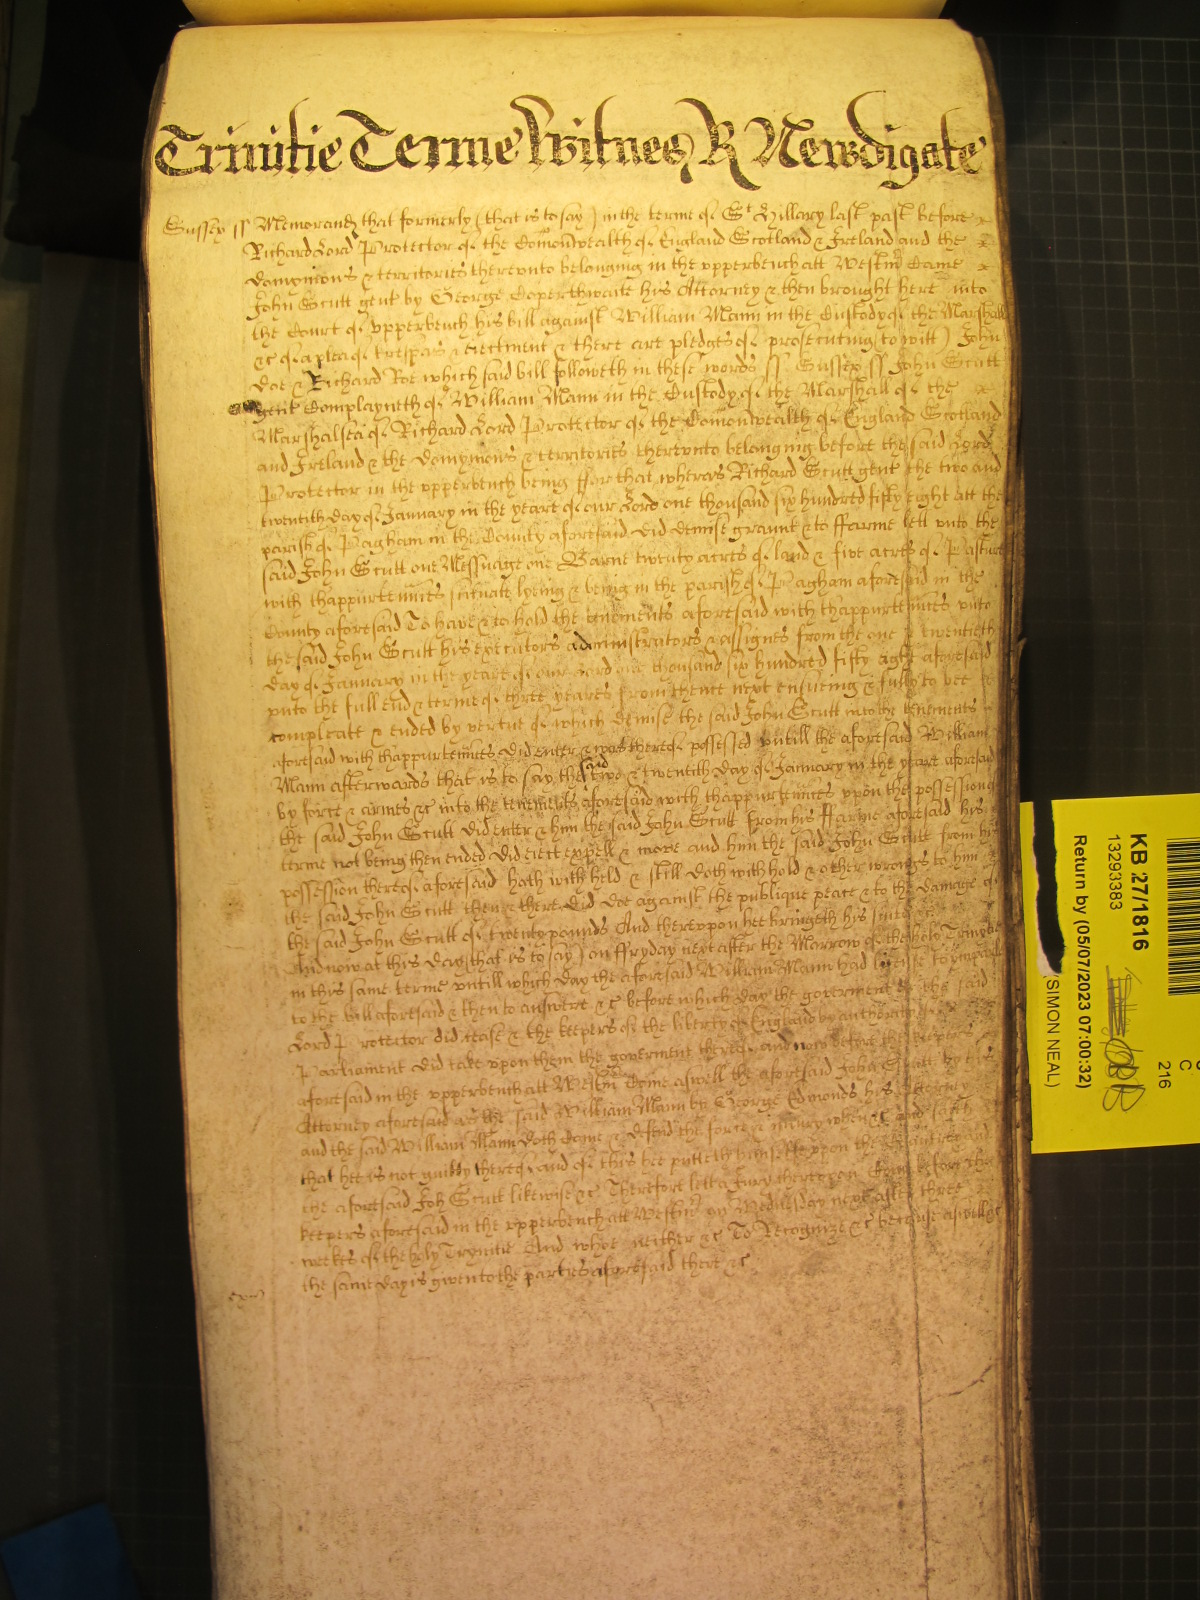 Trinitie Terme Witnes R Newdigate
Sussex ss Memorand that formerly (that is to say) in the terme of St Hillary last past before
Richard Lord Protector of the Comonwealth of England Scotland & Ireland and the
Dominions & territories thereunto belonging in the upperbench att Westmr Came
John Scutt gent by George Coperthwaite his Attorney & then brought here into
the Court of upperbench his bill against William Mann in the Custody of the Marshall
&c of a plea of trespas & eiectment & there are pledges of prosecuting (to witt) John
Doe & Richard Roe which said bill followeth in these words ss Sussex ss John Scutt
gent Complayneth of William Mann in the Custody of the Marshall of the
Marshalsea of Richard Lord Protector of the Comonwealth of England Scotland
and Ireland & the Dominions & territories thereunto belonging before the said Lord
Protector in the upperbench being ffor that whereas Richard Scutt gent the two and
twentith day of January in the yeare of our Lord one thousand six hundred fifty eight att the
parish of Pagham in the County aforesaid did demise graunt & to ffarme lett unto the
said John Scutt one Messuage one Barne twenty acres of land & five acres of Pasture
with thappurtennces scituate lyeing & being in the parish of Pagham aforesaid in the
County aforesaid To have & to hold the tenements aforesaid with thappurtennces unto
the said John Scutt his executors administrators & assignes from the one & twentieth
day of January in the yeare of our Lord one thousand six hundred fifty eight aforesaid
unto the full end & terme of three yeares from thence next ensueing & fully to bee
compleate & ended by vertue of which demise the said John Scutt into the tenements
aforesaid with thappurtennces did enter & was thereof possessed untill the aforesaid William
Mann afterwards that is to say the said two & twentith day of January in the yeare aforesaid
by force & armes &c into the tenements aforesaid with thappurtennces upon the possession of
the said John Scutt did enter & him the said John Scutt from his ffarme aforesaid his
terme not being then ended did eiect expell & move and him the said John Scutt from his
possession thereof aforesaid hath with held & still doth with hold & other wrongs to him
the said John Scutt then & there did doe against the publique peace & to the damage of
the said John Scutt of twenty pounds And thereupon hee bringeth his suite
And now at this day (that is to say) on ffryday next after the Morrow of the holy Trinitie
in this same terme untill which day the aforesaid William Mann had license to imparle
to the bill aforesaid & then to answere &c before which day the goverment of the said
Lord Protector did cease & the keepers of the liberty of England by authority of
Parliament did take upon them the goverment thereof and now before the keepers
aforesaid in the upperbench att Westmr Come aswell the aforesaid John Scutt by his
Attorney aforesaid as the said William Mann by George Edmonds his Attorney
and the said William Mann doth Come & defend the force & iniury when &c and saith
that hee is not guilty thereof and of this hee putteth himselfe upon the Countrey and
the aforesaid Joh Scutt likewise &c Therefore lett a Jury thereupon Come before the
keepers aforesaid in the upperbench att Westmr on Wednesday next after three
weekes of the holy Trynitie And whoe neither &c To Recognize &c because aswell &c
the same day is given to the parties aforesaid there &c
KB 27/1816
13293383
Return by (05/07/2023 07:00:32)
(SIMON NEAL)
C
216